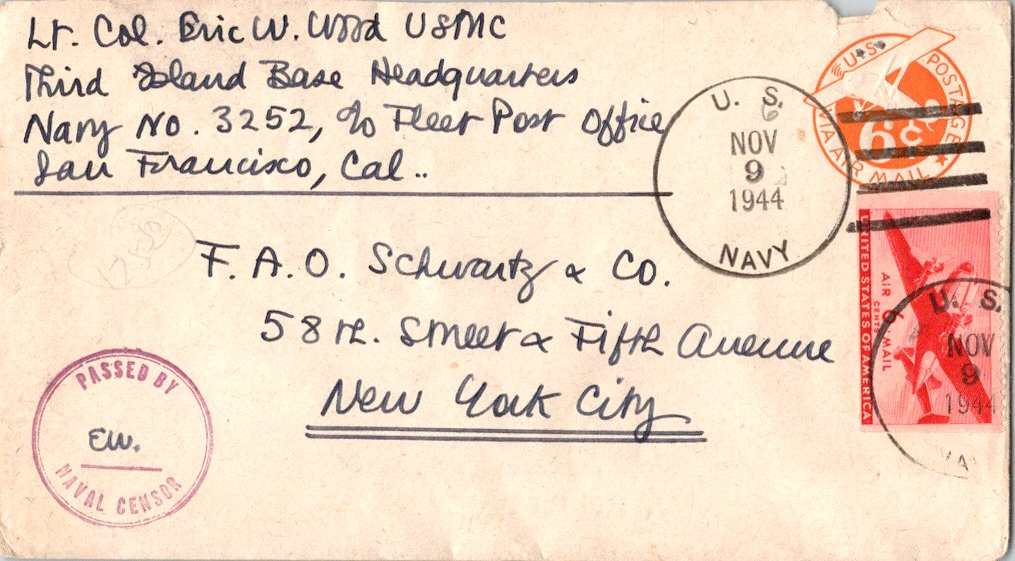 Lt. Col. Eric W. Wood USMC
Third Island Base Headquarters
Navy No. 3252, c/o Fleet Post Office
San Francisco, Cal..
U. S.
NOV
9
1944
NAVY
U.S. POSTAGE
6¢
VIA AIR MAIL
F. A. O. Schwartz & Co.
58th. Street & Fifth Avenue
New York City
UNITED STATES OF AMERICA
AIR MAIL
CENTS
U. S.
NOV
9
1944
PASSED BY
EW.
NAVAL CENSOR